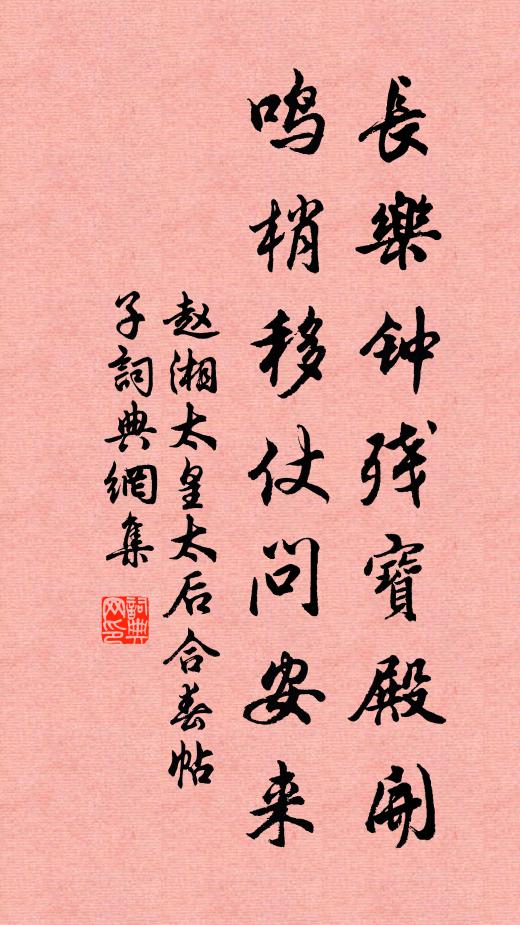 長樂钟残寶殿開
鸣梢移仗问安来
赵湘太皇太后合春帖
子詞典網集
詞典网印